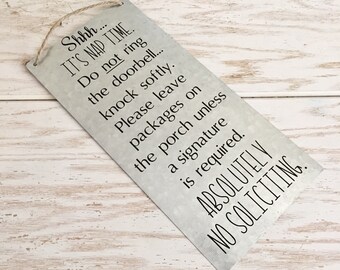 Shhh...
IT'S NAP TIME.
Do not ring
the doorbell...
knock softly.
Please leave
packages on
the porch unless
a signature
is required.
ABSOLUTELY
NO SOLICITING.